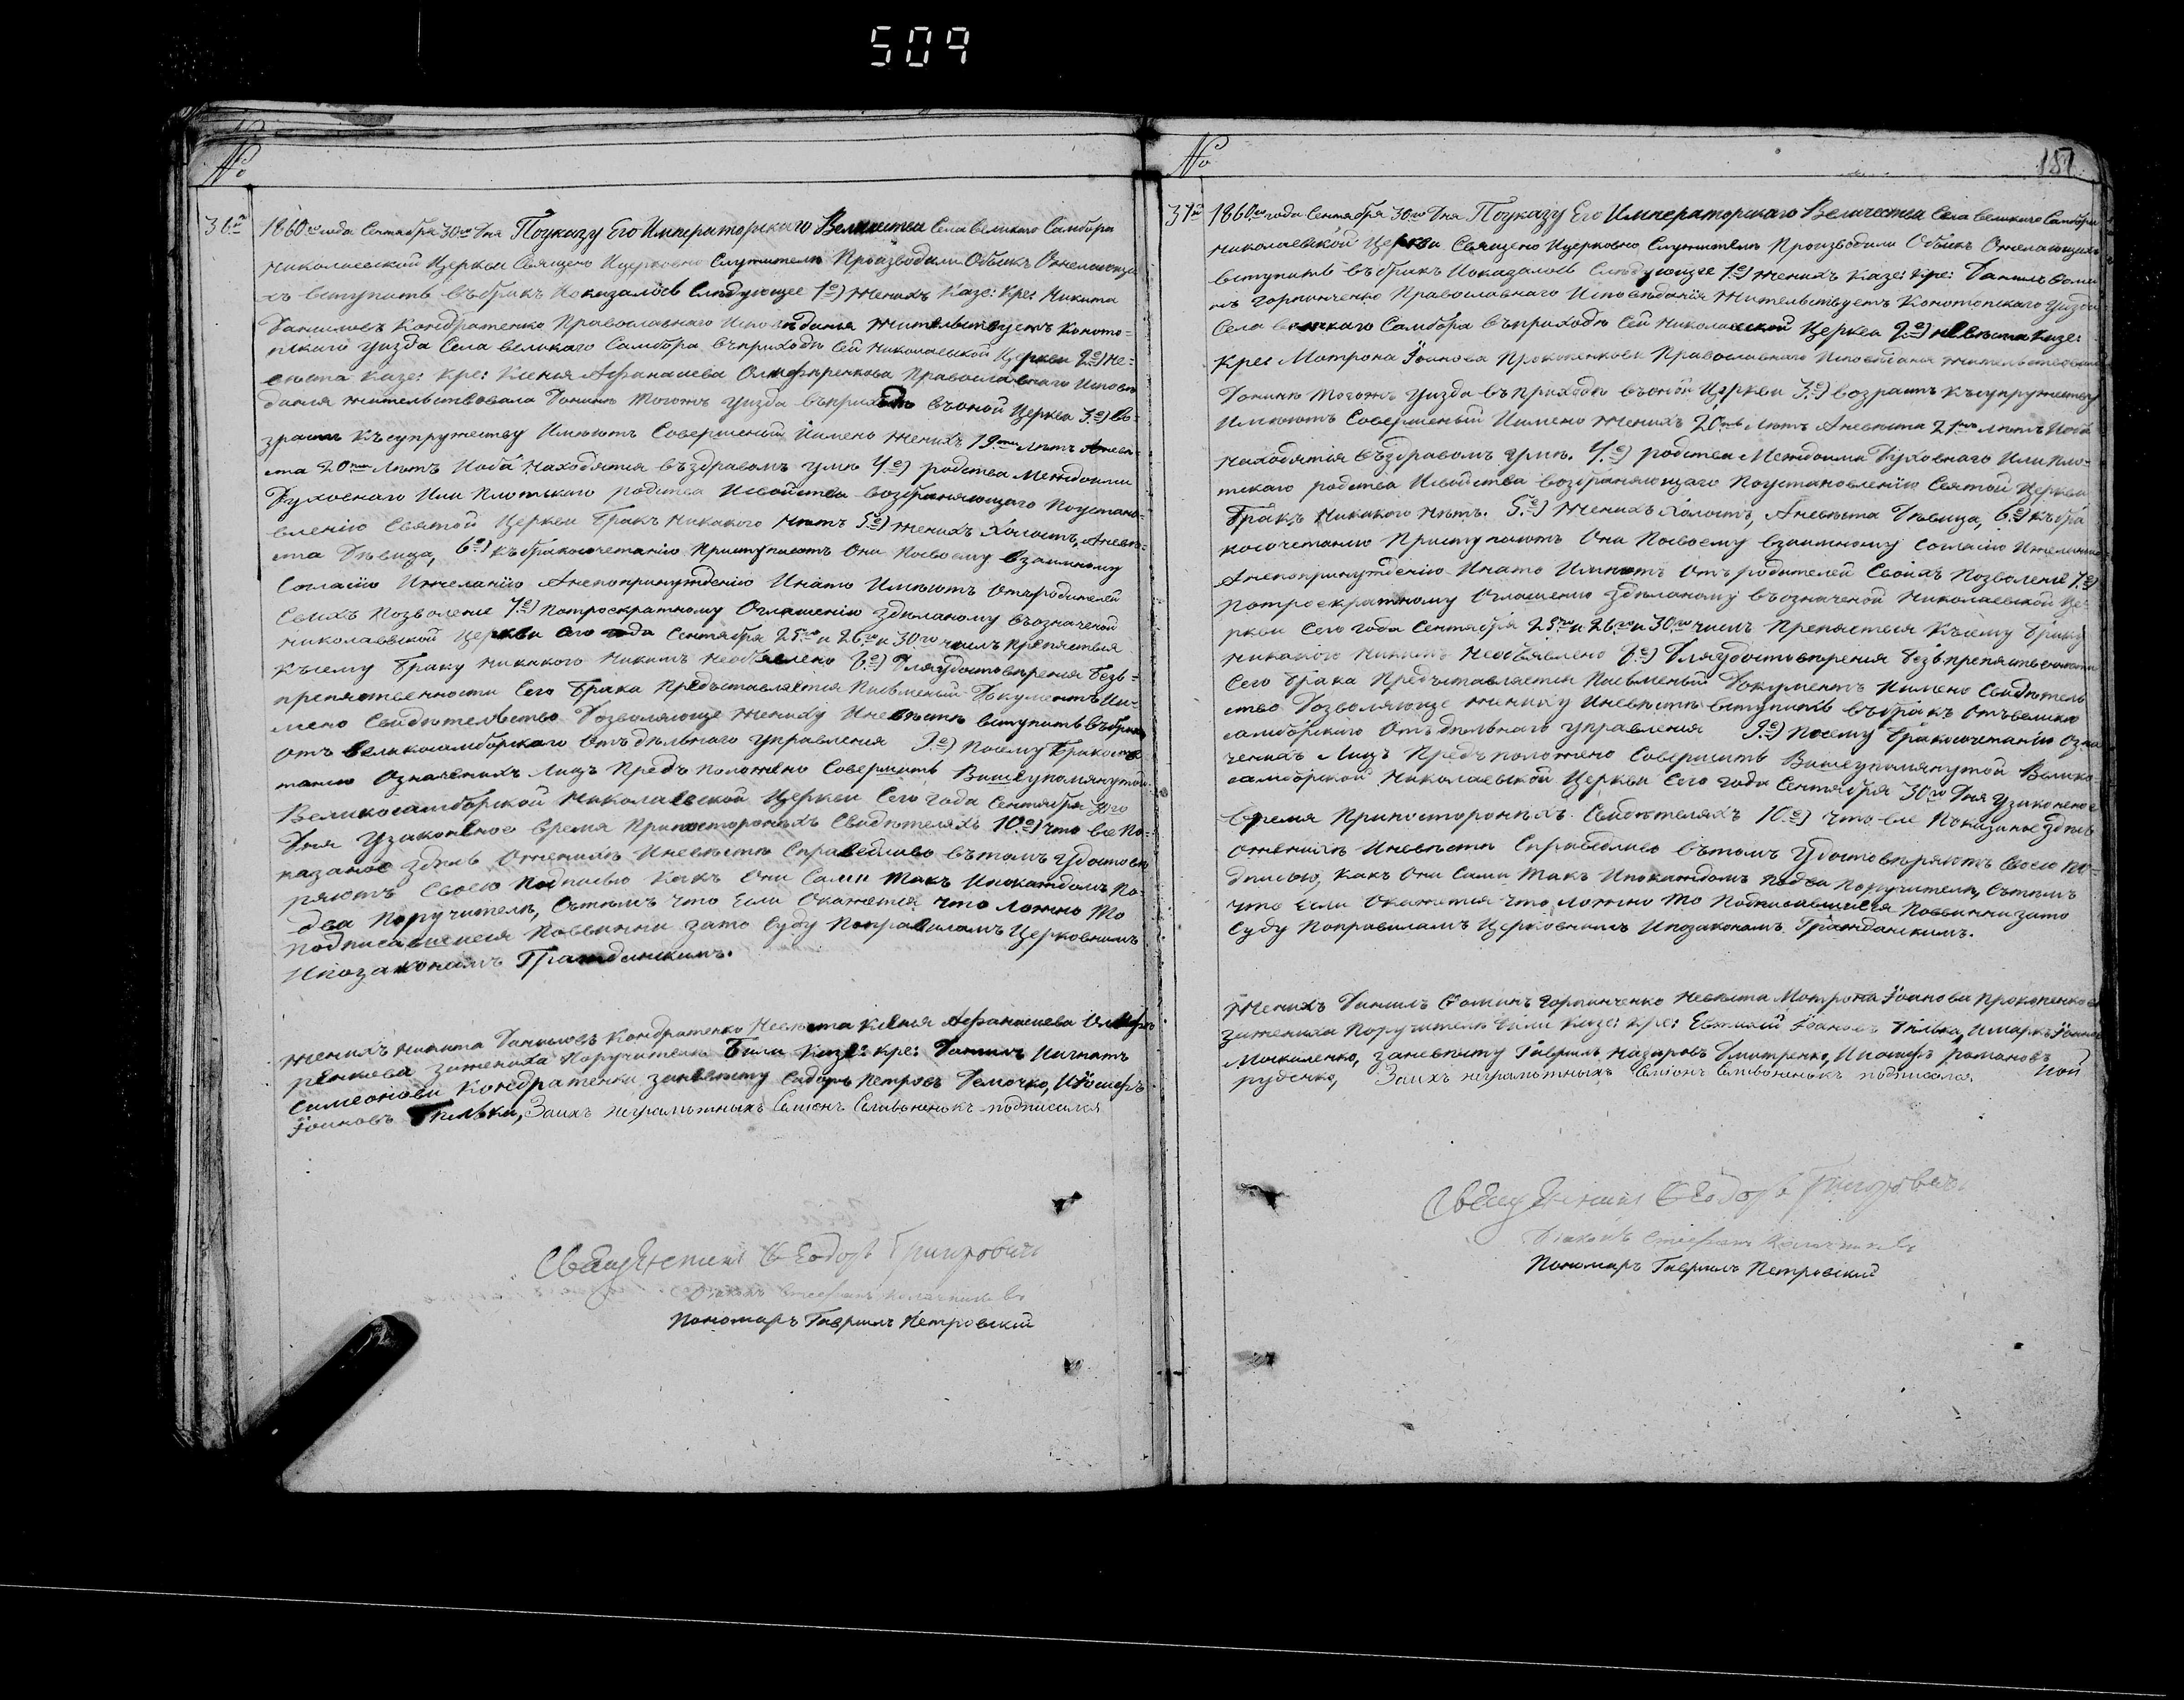 509
№
36е
1860го года Сентября 30го Дня Поуказу Его Императорскаго Величества Села великаго Самбора
Николаевской Церкви Священо Ицерковно Служители Производили Обыскъ Ожелающи
хъ вступить въбракъ Ioказалось Следующее 1е) Женихъ Казе: Кре: Никита
Даниловъ Кондратенко Православнаго Исповѣданія Жительствуетъ Коното-
пскаго уизда Села великаго Самбора въприходѣ Сей Николаевской Церкви 2е) Не-
вѣста Казе: Кре: Ксенья Афанасиева Православнаго Исповѣ
данія Жительствовала Донинѣ Тогожъ уизда въприходѣ вьоной Церкви 3е) Во-
зрастъ Късупружеству Имѣютъ Совершеный Иимено Женихъ 19ти Лѣтъ Аневѣ-
ста 20ти Лѣтъ Иоба Находятся въздравомъ умѣ 4е) родства Междоими
Духовнаго Или Плотскаго родства Исвойства возбраняющаго Поустано-
вленію Святой Церкви Бракъ Никакого Нѣтъ 5е) Женихъ Холостъ, Аневѣ-
ста Дѣвица, 6е) Къбракосочетанію Приступаютъ Они Посвоему взаимному
Согласію Ижеланію Анепопринужденію Инато Имѣютъ Отъродителей
Своихъ Позволеніе 7е) Потроекратному Оглашенію Здѣланому възначеной
Николаевской Церкви Сего года Сентября 25го и 26го и 30го числъ Препятствія
Късему Браку Никакого Никимъ Необъявлено 8е) Дляудостовѣренія Безъ-
препятственности Сего Брака Предъставляется Писменый Документъ Ии-
мено Свидѣтельство Дозволяюще Жениху Иневѣстѣ вступить въбракъ
Отъ Великосамборскаго Отъдѣльнаго Управленія 9е) Посему Бракосоче
танію Означенихъ Лицъ Предъположено Совершить Вишеупомянутой
Великосамборской Николаевской Церкви Сего года Сентября 30го
Дня Узаконеное Время Припостороннихъ Свидѣтеляхъ 10е) Что все По-
казаное Здѣсь Оженихѣ Иневѣстѣ Справедливо вътомъ Удостовѣ
ряютъ Своею Подписью Какъ Они Сами Такъ Ипокаждомъ По-
два Поручителѣ, Сътымъ что Если Окажется Что Ложно То
Подписавшиеся Повинни Зато Суду Поправиламъ Церковнимъ
Ипозаконамъ Гражданскимъ.
Женихъ Никита Даниловъ Кондратенко Невѣста Ксенья Афанасиева
ренкова Зажениха Поручители Били Казе: Кре: Данилъ Иигнатъ
Симеонови Кондратенки Заневѣсту Сидоръ Петровъ Демочко, Иіосифъ
Іоановъ Тилька, Заихъ неграмотныхъ Семіонъ подписался
Священникъ Феодоръ Григоровичъ
Пономаръ Гавриилъ Петровскій
№
151
37е
1860го года Сентября 30го Дня Поуказу Его Императорскаго Величества Села великаго Самбора
Николаевской Церкви Священо Ицерковно Служители Производили Обыскъ Ожелающихъ
вступить въбракъ Иоказалось Слѣдующее 1е) Женихъ Казе: Кре: Данилъ Фоми
нъ Горпинченко Православнаго Исповѣданія Жительствуетъ Конотопскаго Уизда
Села великаго Самбора въприходѣ Сей Николаевской Церкви 2е) Невѣста Казе:
Кре: Мотрона Іоанова Прокопенкови Православнаго Исповѣданя Жительствовала
Донинѣ Тогожъ Уизда въприходѣ въоной Церкви 3е) Возрастъ Късупружеству
Имѣютъ Совершеный Иимено Женихъ 20ть Лѣтъ Аневѣста 21 Лѣтъ Иоба
Находятся въздравомъ умѣ. 4е) родства Междоими Духовнаго Или Пло-
тскаго родства Исвойства возбраняющаго Поустановленію Святой Церкви
Бракъ Никакого Нѣтъ. 5е) Женихъ Холостъ, Аневѣста Дѣвица, 6е) Къбра
косочетанію Приступаютъ Они Посвоему взаимному Согласію Ижеланию
Анепопринужденію Инато Имѣютъ Отъродителей Своихъ Позволеніе 7е)
Потроекратному Оглашению Здѣланому въозначеной Николаевской Це
ркви Сего года Сентября 25го и 26го и 30го числъ Препятствія Късему Браку
Никакого Никимъ Необъявлено 8е) Дляудостовѣрения Безъпрепятственности
Сего Брака Предъставляется Писменый Документъ Иимено Свидѣтель
ство Дозволяюще Жениху Иневѣстѣ вступить въбракъ Отъвелико
самборскаго Отъдѣльнаго Управленія 9е) Посему Бракосочетанію Озна
ченихъ Лицъ Предъположено Совершить Вишеупомянутой Велико-
самборской Николаевской Церкви Сего года Сентября 30го Дня Узаконеное
Время Припостороннихъ Свидѣтеляхъ 10е) Что все Показаное Здѣсь
Оженихѣ Иневѣстѣ Справедливо вътомъ Удостовѣряютъ Своею По-
дписью, Какъ Они Сами Такъ Ипокаждомъ Подва Поручителѣ, Сътымъ
Что Если Окажется Что Ложно То Подписавшиеся Повинни Зато
Суду Поправиламъ Церковнимъ Ипозаконамъ Гражданскимъ.
Женихъ Данилъ Фоминъ Горпинченко Невѣста Мотрона Іоанова Прокопенкова
Зажениха Поручители Били Казе: Кре: Евтихій Іоановъ Тилька, Имаркъ
Москаленко, Заневѣсту Гаврилъ Назаровъ Дмитренко, Иіосифъ Романовъ
Руденко, Заихъ неграмотныхъ Семіонъ подписался.
Священникъ Феодоръ Григоровичъ
Пономаръ Гавриилъ Петровский